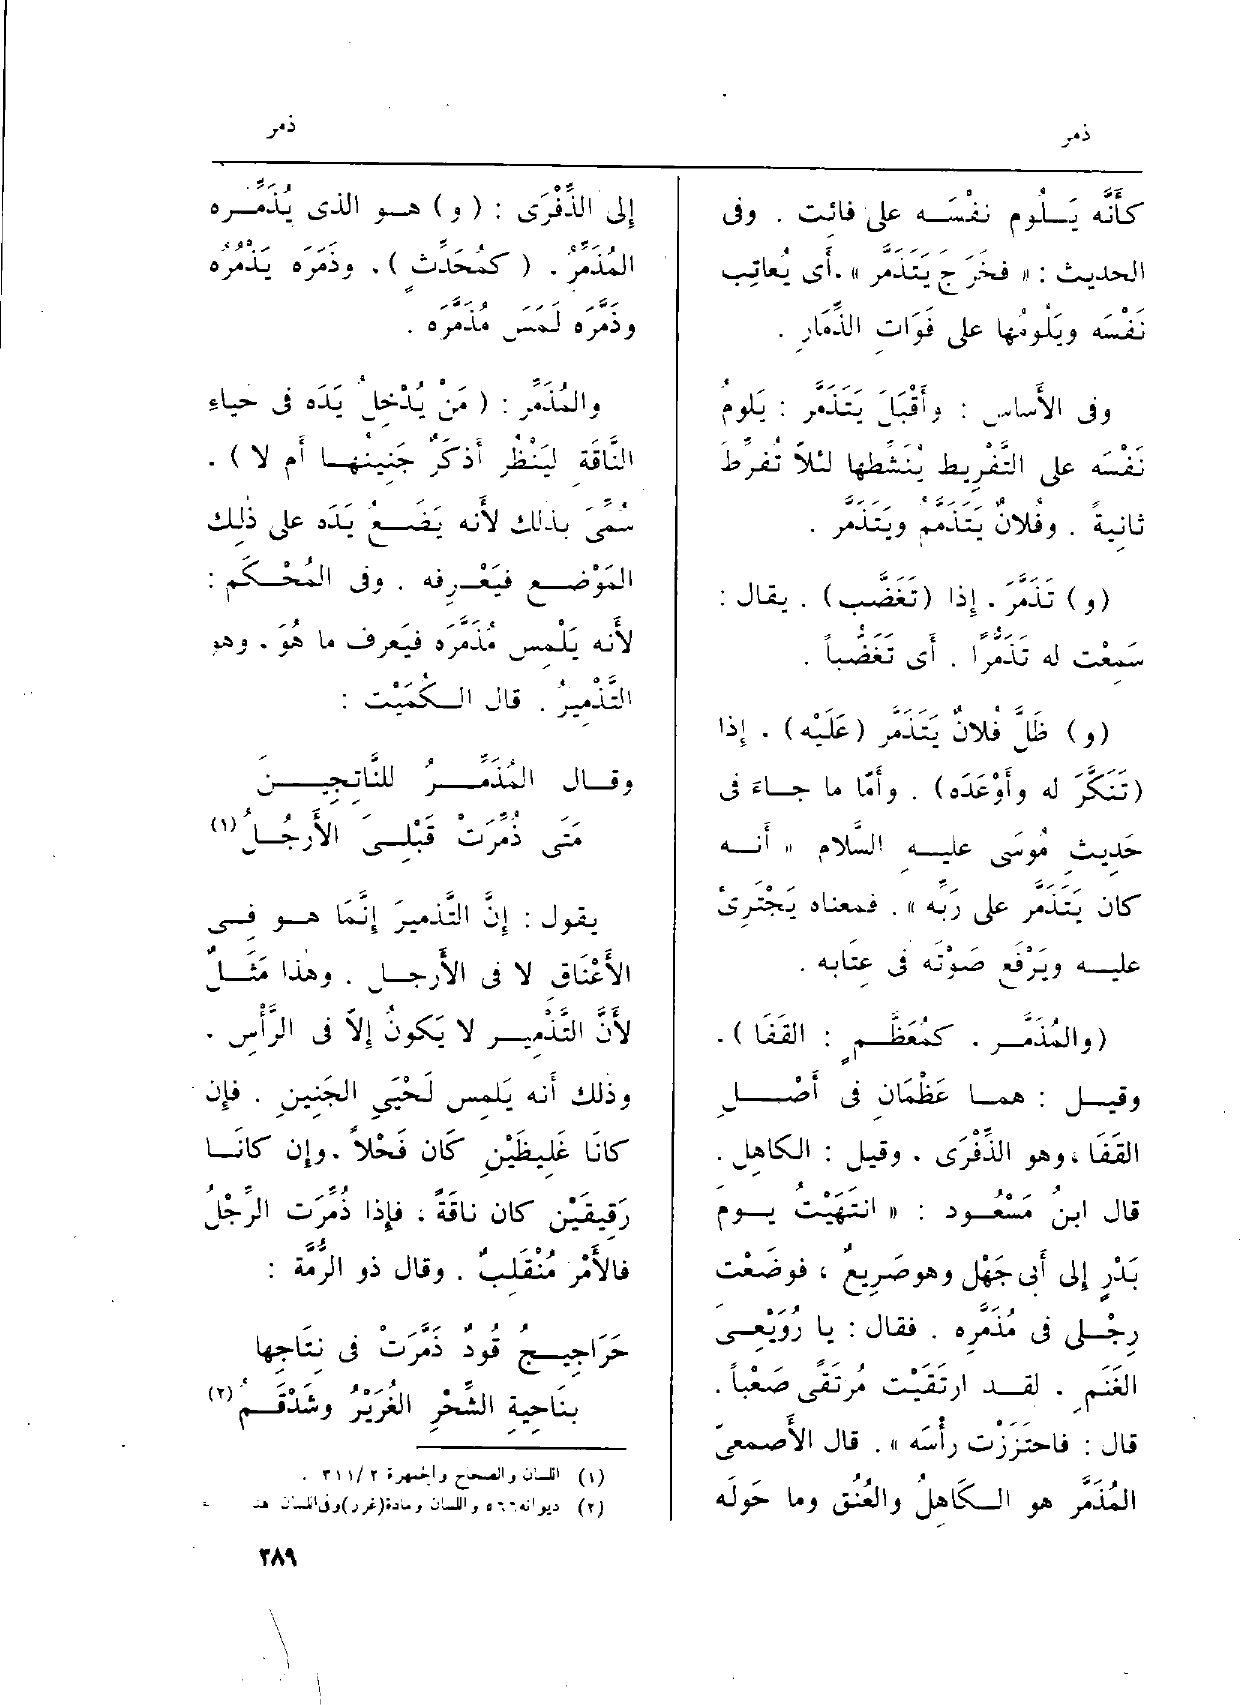 ذمر
ذمر
كأَنَّه يَــلُوم نفْسَــه على فائت . وفى
الحديث : « فخَرَج يَتَذَمَّر » . أى يُعاتِب
نَفْسَه ويَلُومُها على فَوَاتِ الذِّمَارِ .
وفى الأَساس : وأَقْبَلَ يَتَذَمَّر : يَلومُ
نَفْسَه على التَّفْرِيط يُنَشِّطها لئلاَّ تُفرِّطَ
ثانِيةً . وفُلانٌ يَتَذَمَّمُ ويَتَذَمَّر .
(و) تَذَمَّرَ . إذا (تَغَضَّب) . يقال :
سَمِعْت له تَذَمُّرًا . أى تَغَضُّباً .
(و) ظَلَّ فُلانٌ يَتَذَمَّر (عَلَيْه) . إِذا
(تَنَكَّرَ له وأَوْعَدَه) . وأَمّا ما جــاءَ فى
حَدِيثِ مُوسَى عليــه السَّلام « أَنــه
كان يَتَذَمَّر على رَبِّه » . فمعناه يَجْتَرِىْ
عليــه ويَرْفَع صَوْتَه فى عِتَابه .
(والمُذَمَّــر . كمُعَظَّــمٍ : القَفَا) .
وقيــل : همــا عَظْمَانِ فى أَصْــلِ
القَفَا ، وهو الذِّفْرَى . وقيل : الكاهِل .
قال ابنُ مَسْعُــود : « انتَهَيْتُ يــوم
بَدْرٍ إلى أَبى جَهْل وهو صَرِيعٌ ، فوضَعْت
رِجْــلى فى مُذَمَّره . فقال : يا رُوَيْعِــىَ
الغَنَمِ . لقــد ارتَقَيْت مُرتَقًى صَعْباً .
قال : فاحتَزَزْت رأْسَه » . قال الأَصمعىّ
المُذَمَّر هو الــكَاهِلُ والعُنُق وما حَولَه
إلى الذِّفْرَى : (و) هــو الذى يُذَمِّــره
المُذَمِّرُ . ( كمُحَدِّثٍ ) . وذَمَرَه يَذْمُرُه
وذَمَّرَه لَمَسَ مُذَمَّرَه .
والمُذَمِّر : ( مَنْ يُدْخِلُ يَدَه فى حياءِ
النَّاقَةِ لِيَنْظُر أَذكَرٌ جَنِينُهــا أم لا ) .
سُمِّىَ بذلك لأَنه يَضَــعُ يَدَه على ذٰلِك
المَوْضــع فيَعْــرِفه . وفى المُحْــكَم :
لأَنه يَلْمِس مُذَمَّرَه فيَعرِف ما هُوَ . وهو
التَّذْمِيرُ . قال الــكُمَيْت :
وقــال المُذَمِّــرُ للنَّاتِجِــينَ
مَتَى ذُمِّرَتْ قَبْلِــىَ الأَرجُــلُ (١)
يقول : إنَّ التَّذمِيرَ إنَّمَا هــو فــى
الأَعْنَاقِ لا فى الأَرجــل . وهٰذا مَثَــلٌ
لأَنَّ التَّذْمِيــر لا يَكونُ إلاَّ فى الرَّأْسِ .
وذلك أَنه يَلمِس لَحْيَىِ الجَنِينِ . فإن
كانَا غَلِيظَيْنِ كَان فَحْلاً . وإن كانَــا
رَقِيقَيْن كان ناقَةً . فإذا ذُمِّرَت الرِّجْلُ
فالأَمْر مُنْقَلِبٌ . وقال ذو الرُّمَّة :
حَرَاجِيــجُ قُودٌ ذُمِّرَتْ فى نِتَاجِها
بنَاحِيةِ الشِّحْرِ الغُرَيْرُ وشَدْقَــمُ (٢)
(١) اللسان والصحاح والجمهرة ٣١١/٢ .
(٢) ديوانه ٥٦٦ واللسان ومادة (غرر) وفى اللسان هنا
٣٨٩